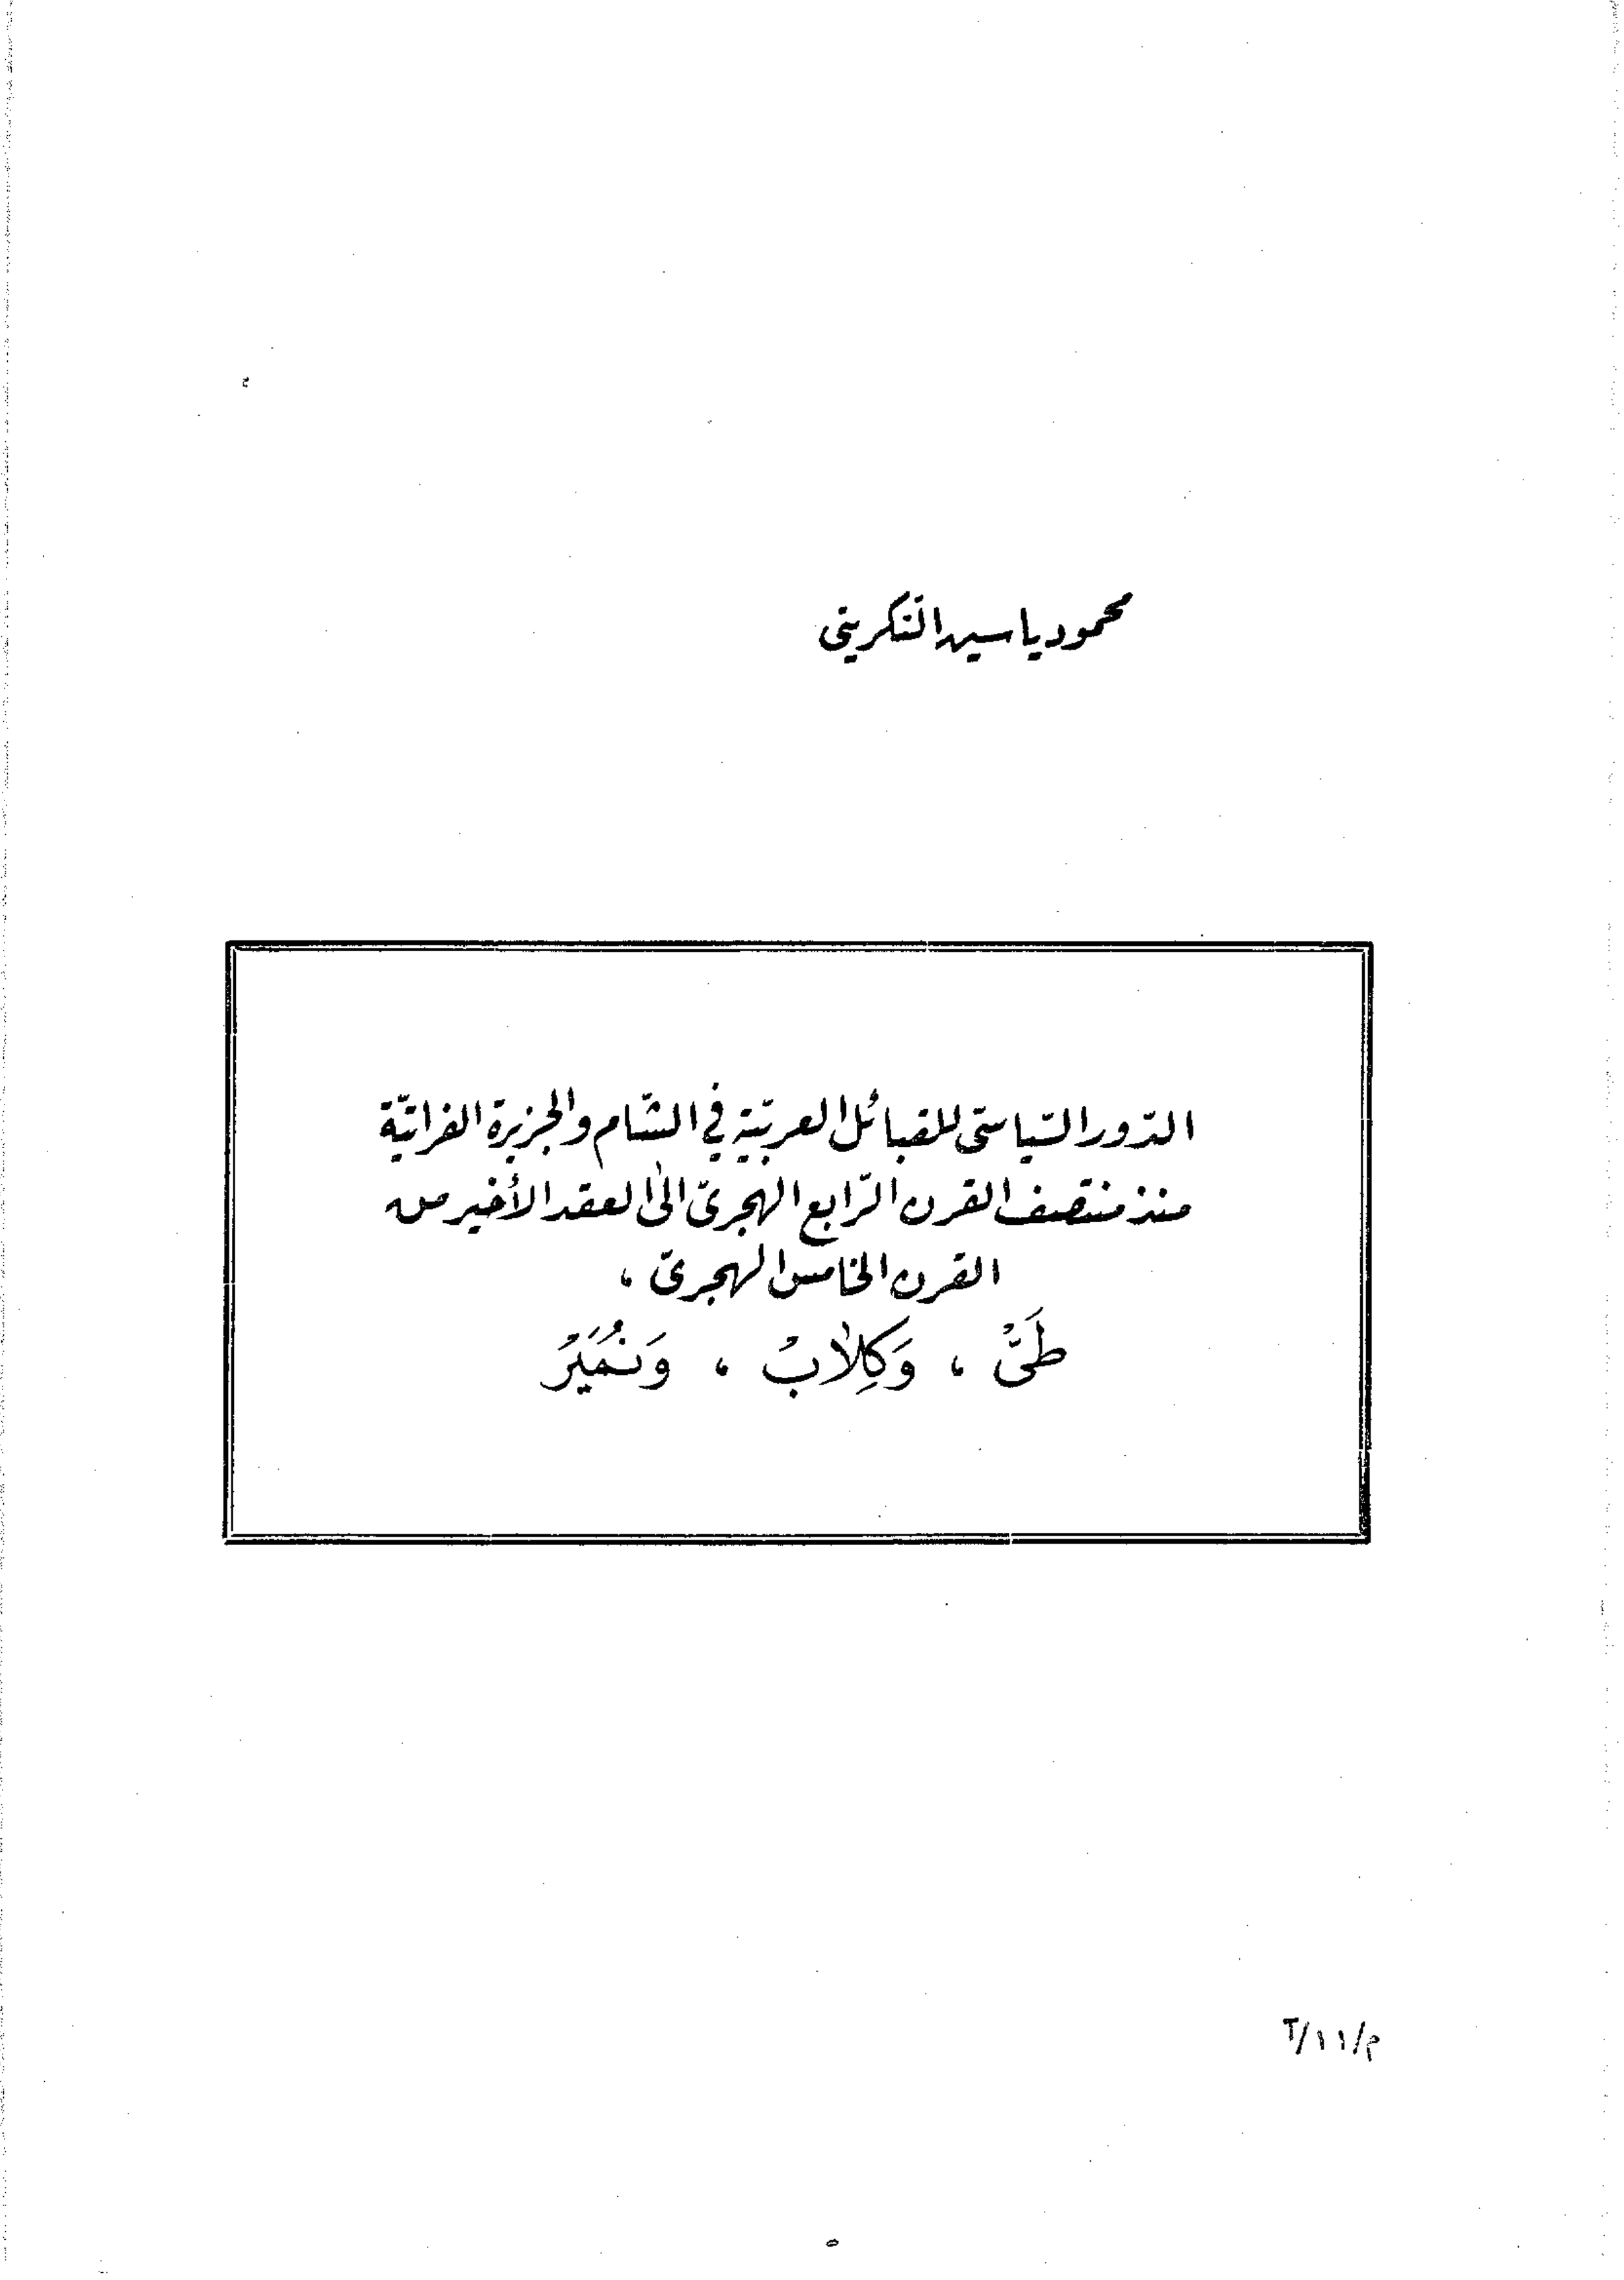 محمود ياسين التكريتي
الدّور السّياسيّ للقبائل العربيّة في الشّام والجزيرة الفراتيّة
منذ منتصف القرن الرّابع الهجريّ الىٰ العقد الأخير من
القرن الخامس الهجريّ ،
طَيّْ ، وَكِلاٰبْ ، وَنُمَيَرْ
م/١١/٢
٥